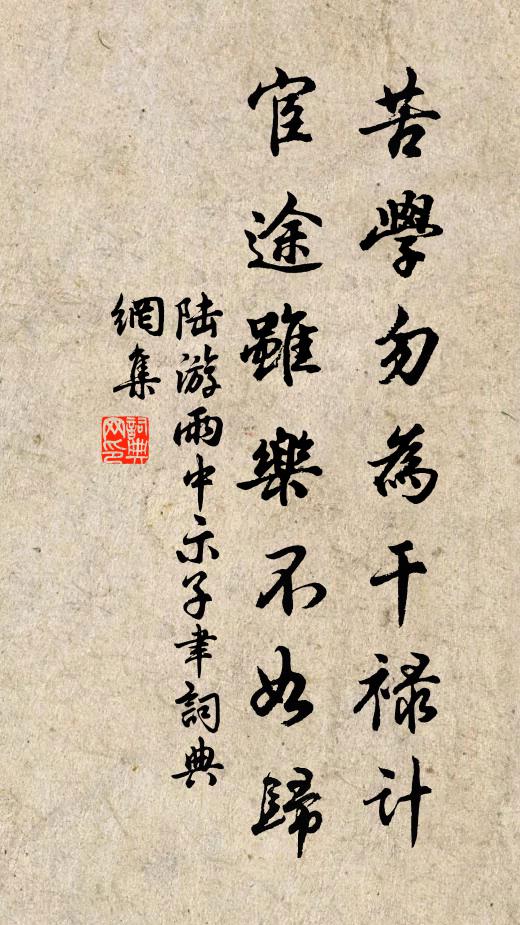 苦學勿為干祿計
宦途雖樂不如歸
陸游雨中示子聿詞典
網集
詞典
网印